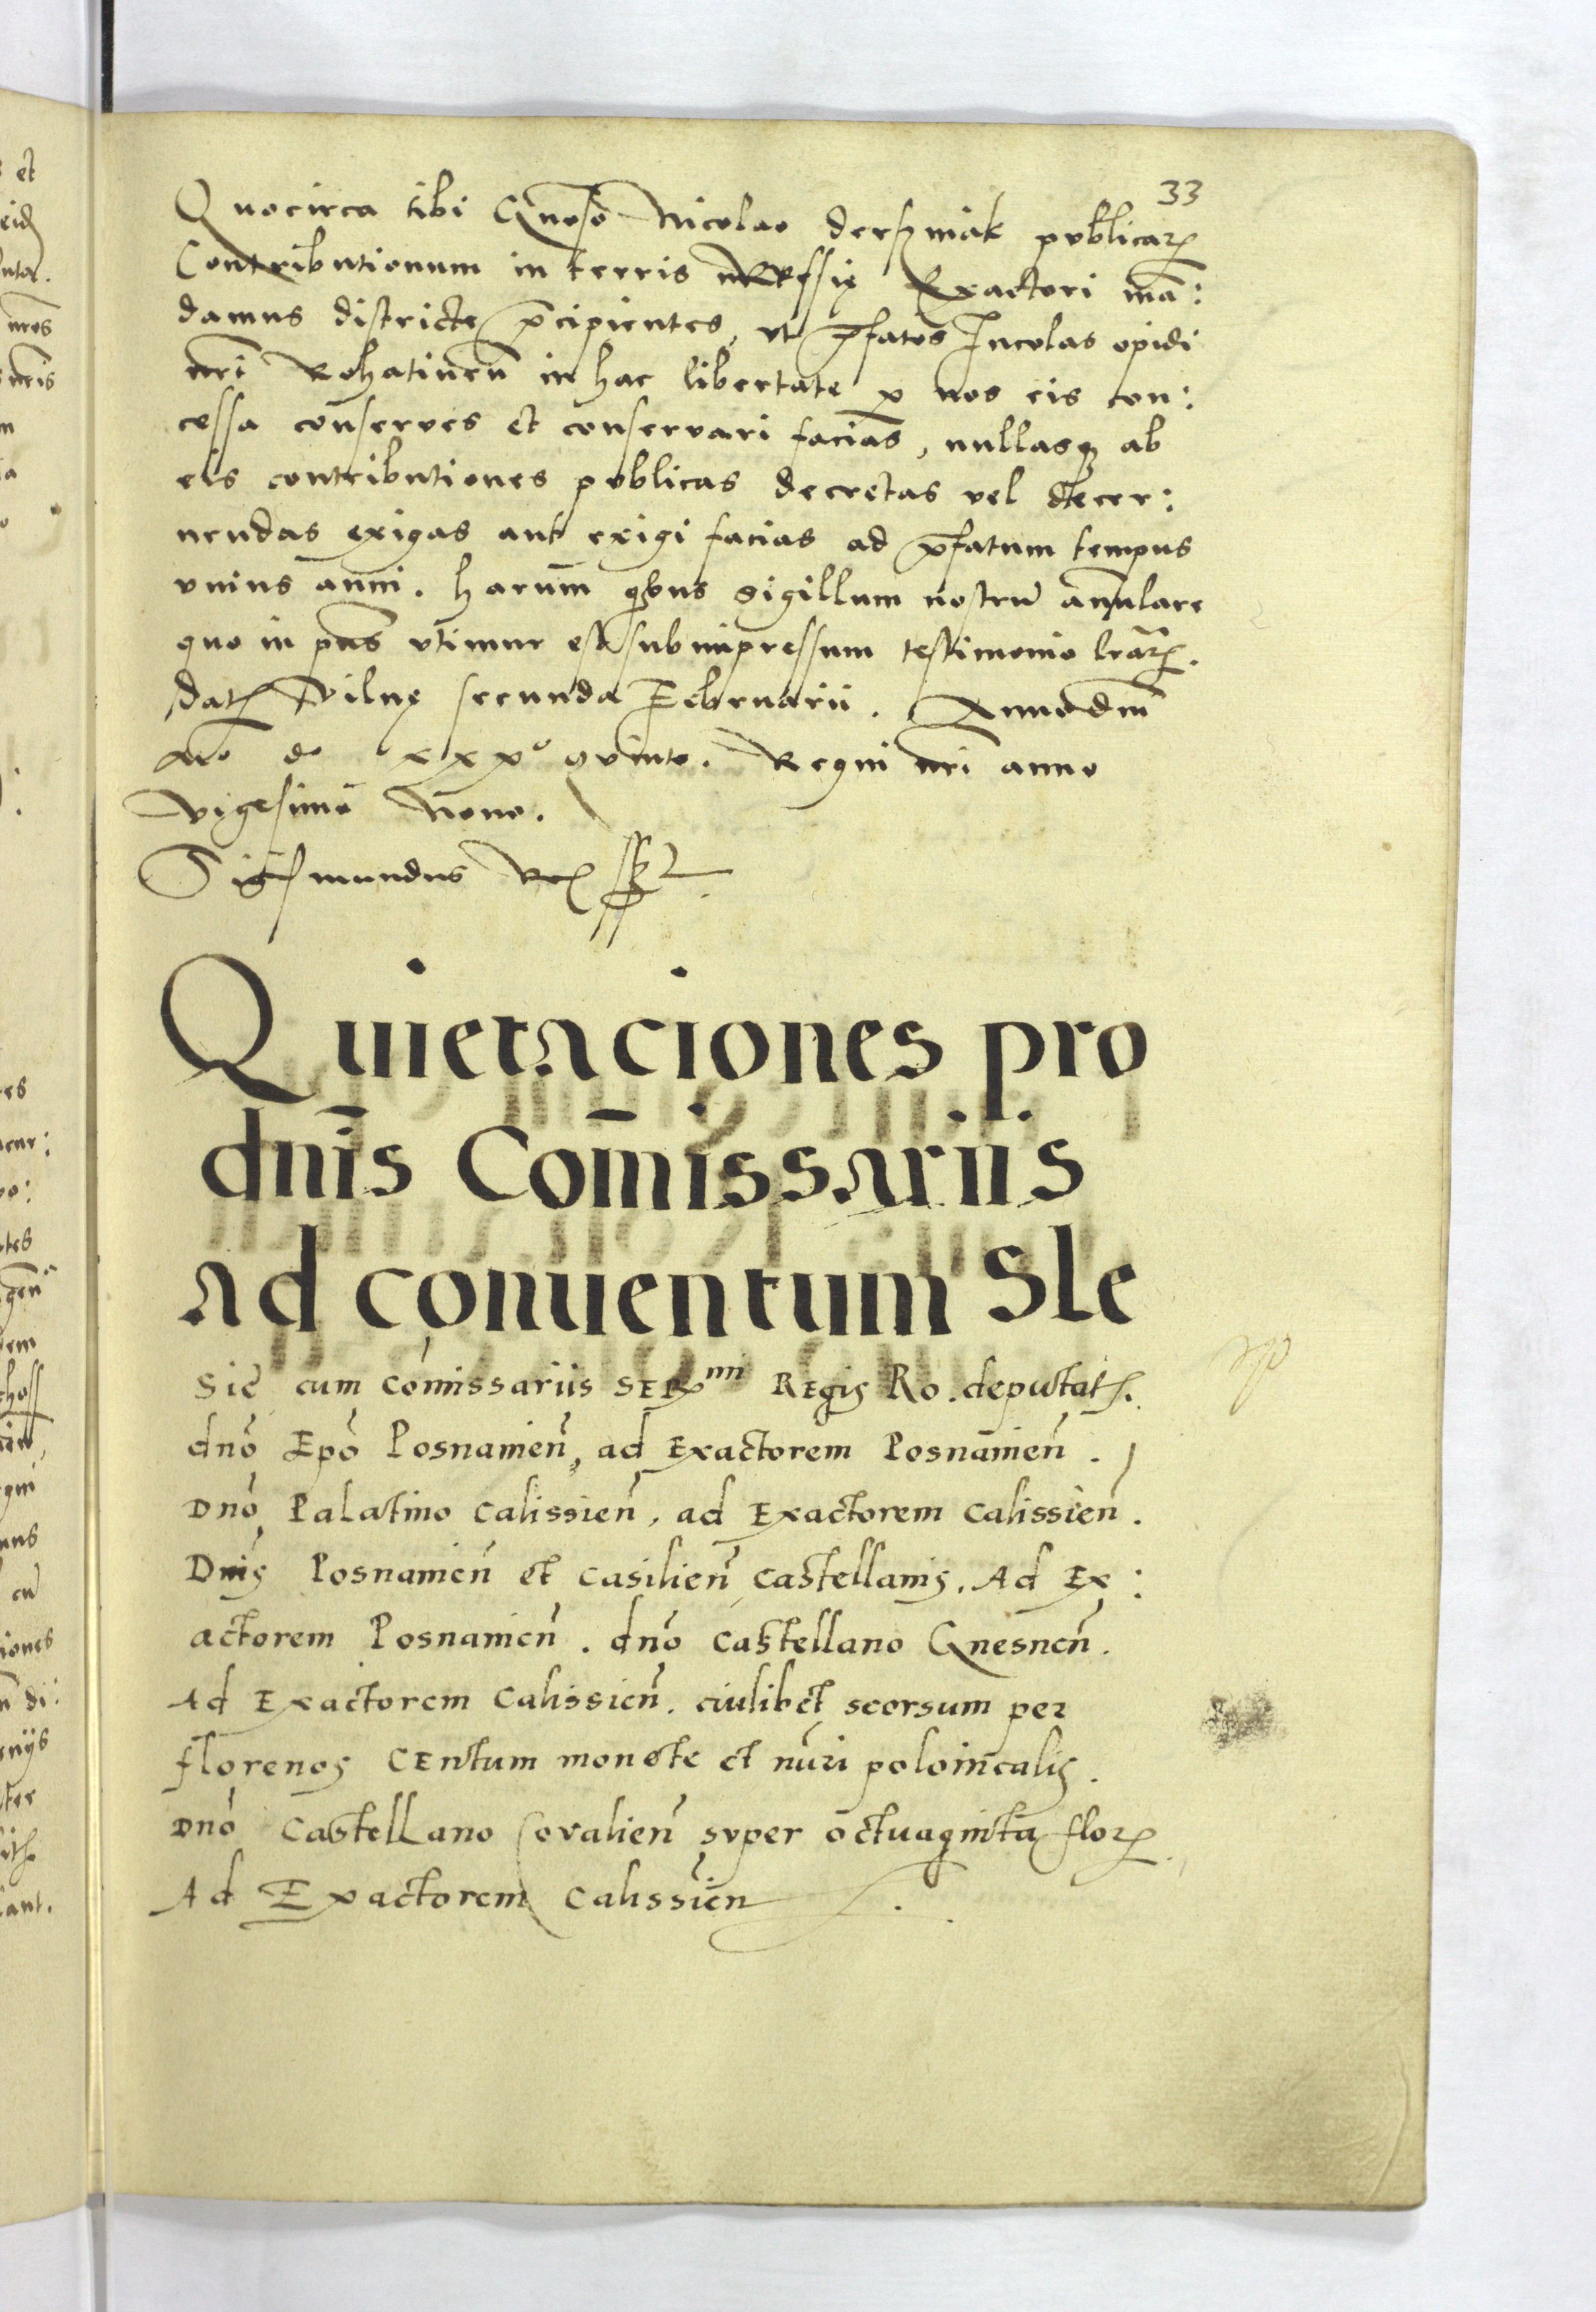 33
Quocirca tibi Gnoso Nicolao derszniak publicarꝝ
Contributionum in terris Russię Exactori mā:
damus districte p̄cipientes, vt p̄fatos Incolas opidi
nr̄i Rohatinen̄ in hac libertate ꝑ nos eis con:
cessa conserves et conservari facias, nullasqꝫ ab
eis contributiones publicas decretas vel decer:
nendas exigas aut exigi facias ad p̄fatum tempus
vnius anni. harum qbus sigillum nostrū annulare
quo in pn̄s vtimur est subimpressum testimonio lr̄arꝝ.
Datꝭ Vilnę secunda Februarii. Anno dn̄i
Mo do xxxo quinto. Regni nr̄i anno
vigesimo Nono.
Sigismundus Rex sst
Quietaciones pro
dnīs Com̄issariis
ad conuentum Sle
Sie cum com̄issariis SERmi REgis Ro. deputatꝭ.
dnō Epō Posnanien̄, ad Exactorem Posnanien̄.
Dnō Palatino Calissien̄, ad Exactorem Calissien̄.
Dnis Posnanien̄ et Casilien̄ Castellanis. Ad Ex:
actorem Posnanien̄. dnō Castellano Gnesnen̄.
Ad Exactorem Calissien̄. cuilibet seorsum per
florenos CEntum monete et nūri polonicalis.
Dnō CastelLano Covalien̄ super octuaginta florꝝ.
Ad Exactorem Calissien̄